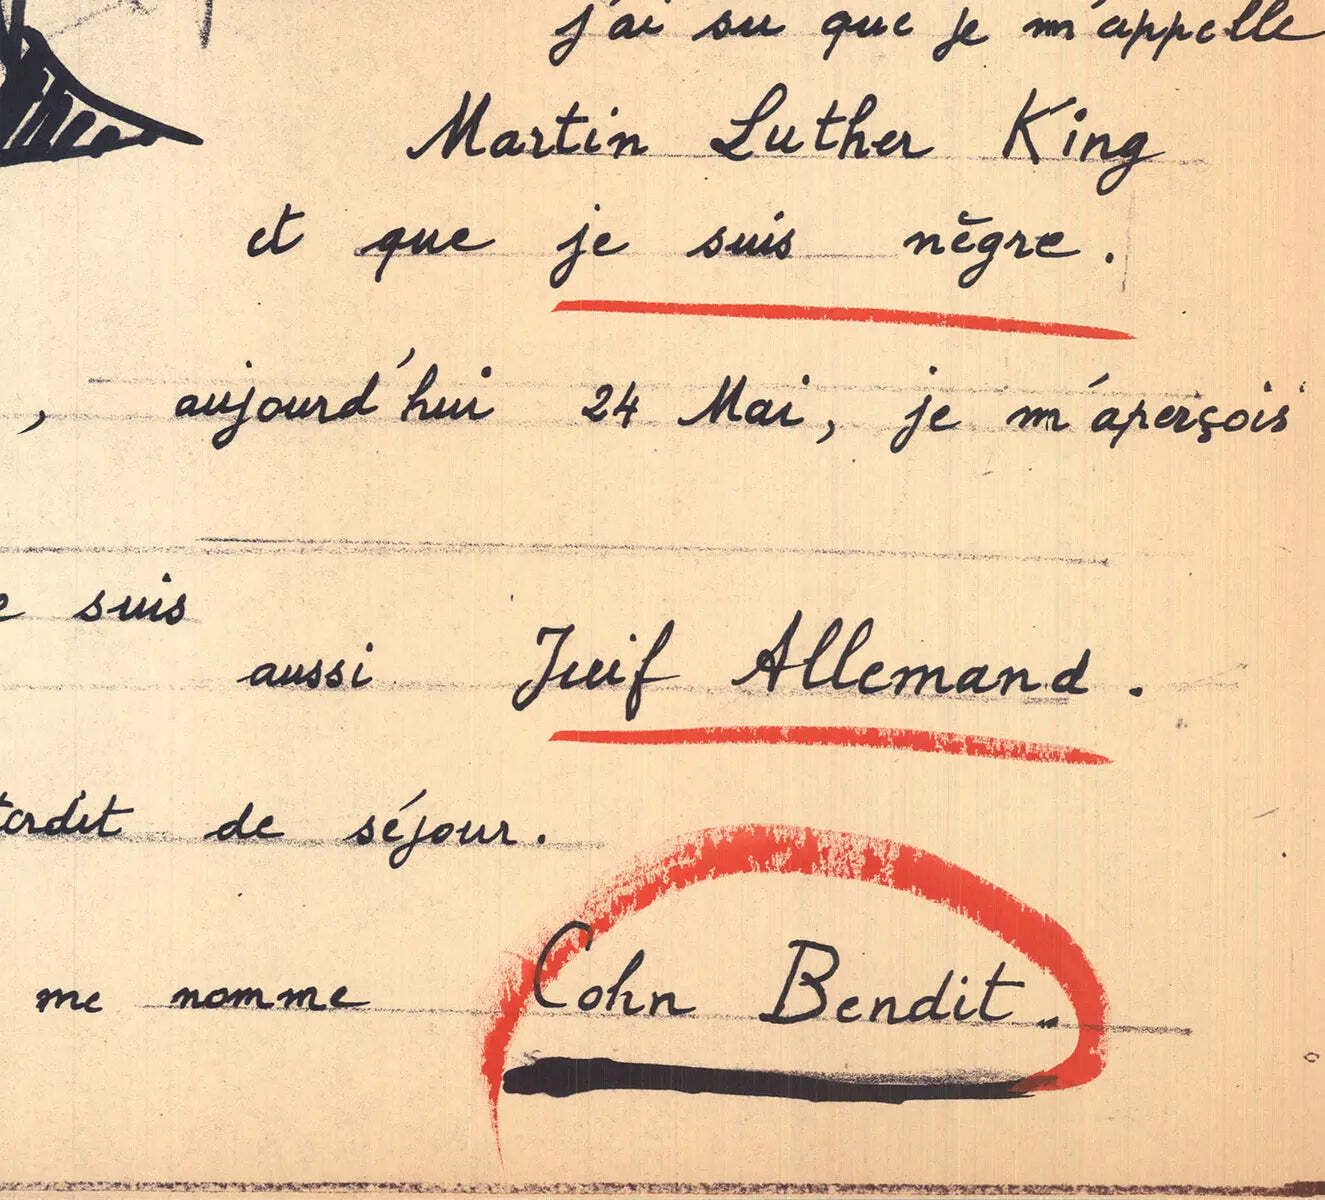 j'ai su que je m'appelle
Martin Luther King
et que je suis nègre.
, aujourd'hui 24 Mai, je m'aperçois
suis
aussi Juif Allemand.
de séjour.
me nomme Cohn Bendit..